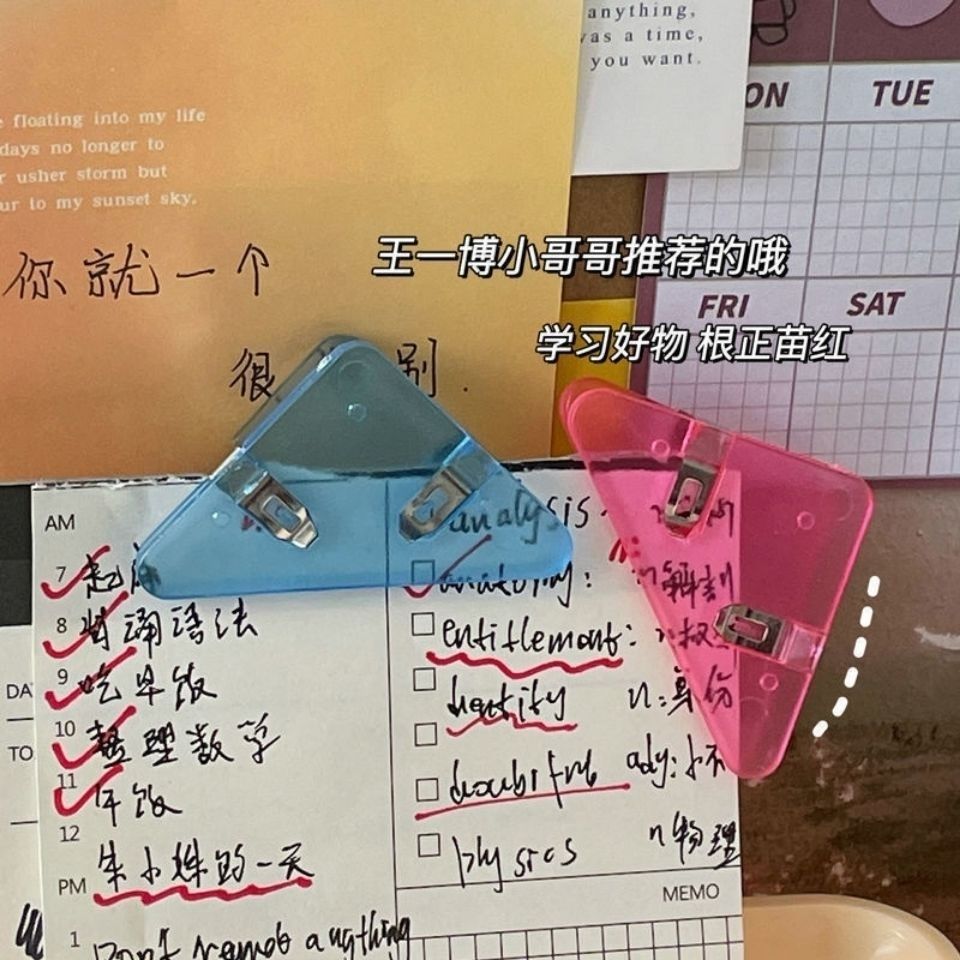 anything,
was a time,
you want.
ON
TUE
floating into my life
days no longer to
usher storm but
to my sunset sky.
你就一个
很 别.
王一博小哥哥推荐的哦
学习好物 根正苗红
FRI
SAT
AM
7 起
8 背诵语法
9 吃早饭
10 整理数学
11 午饭
12
PM 朱小姝的一天
1 Don't anything
analysis
anatomy: n:解剖
entitlement: n:权
identity n:身份
adj:
physics n物理
MEMO
DA
TO